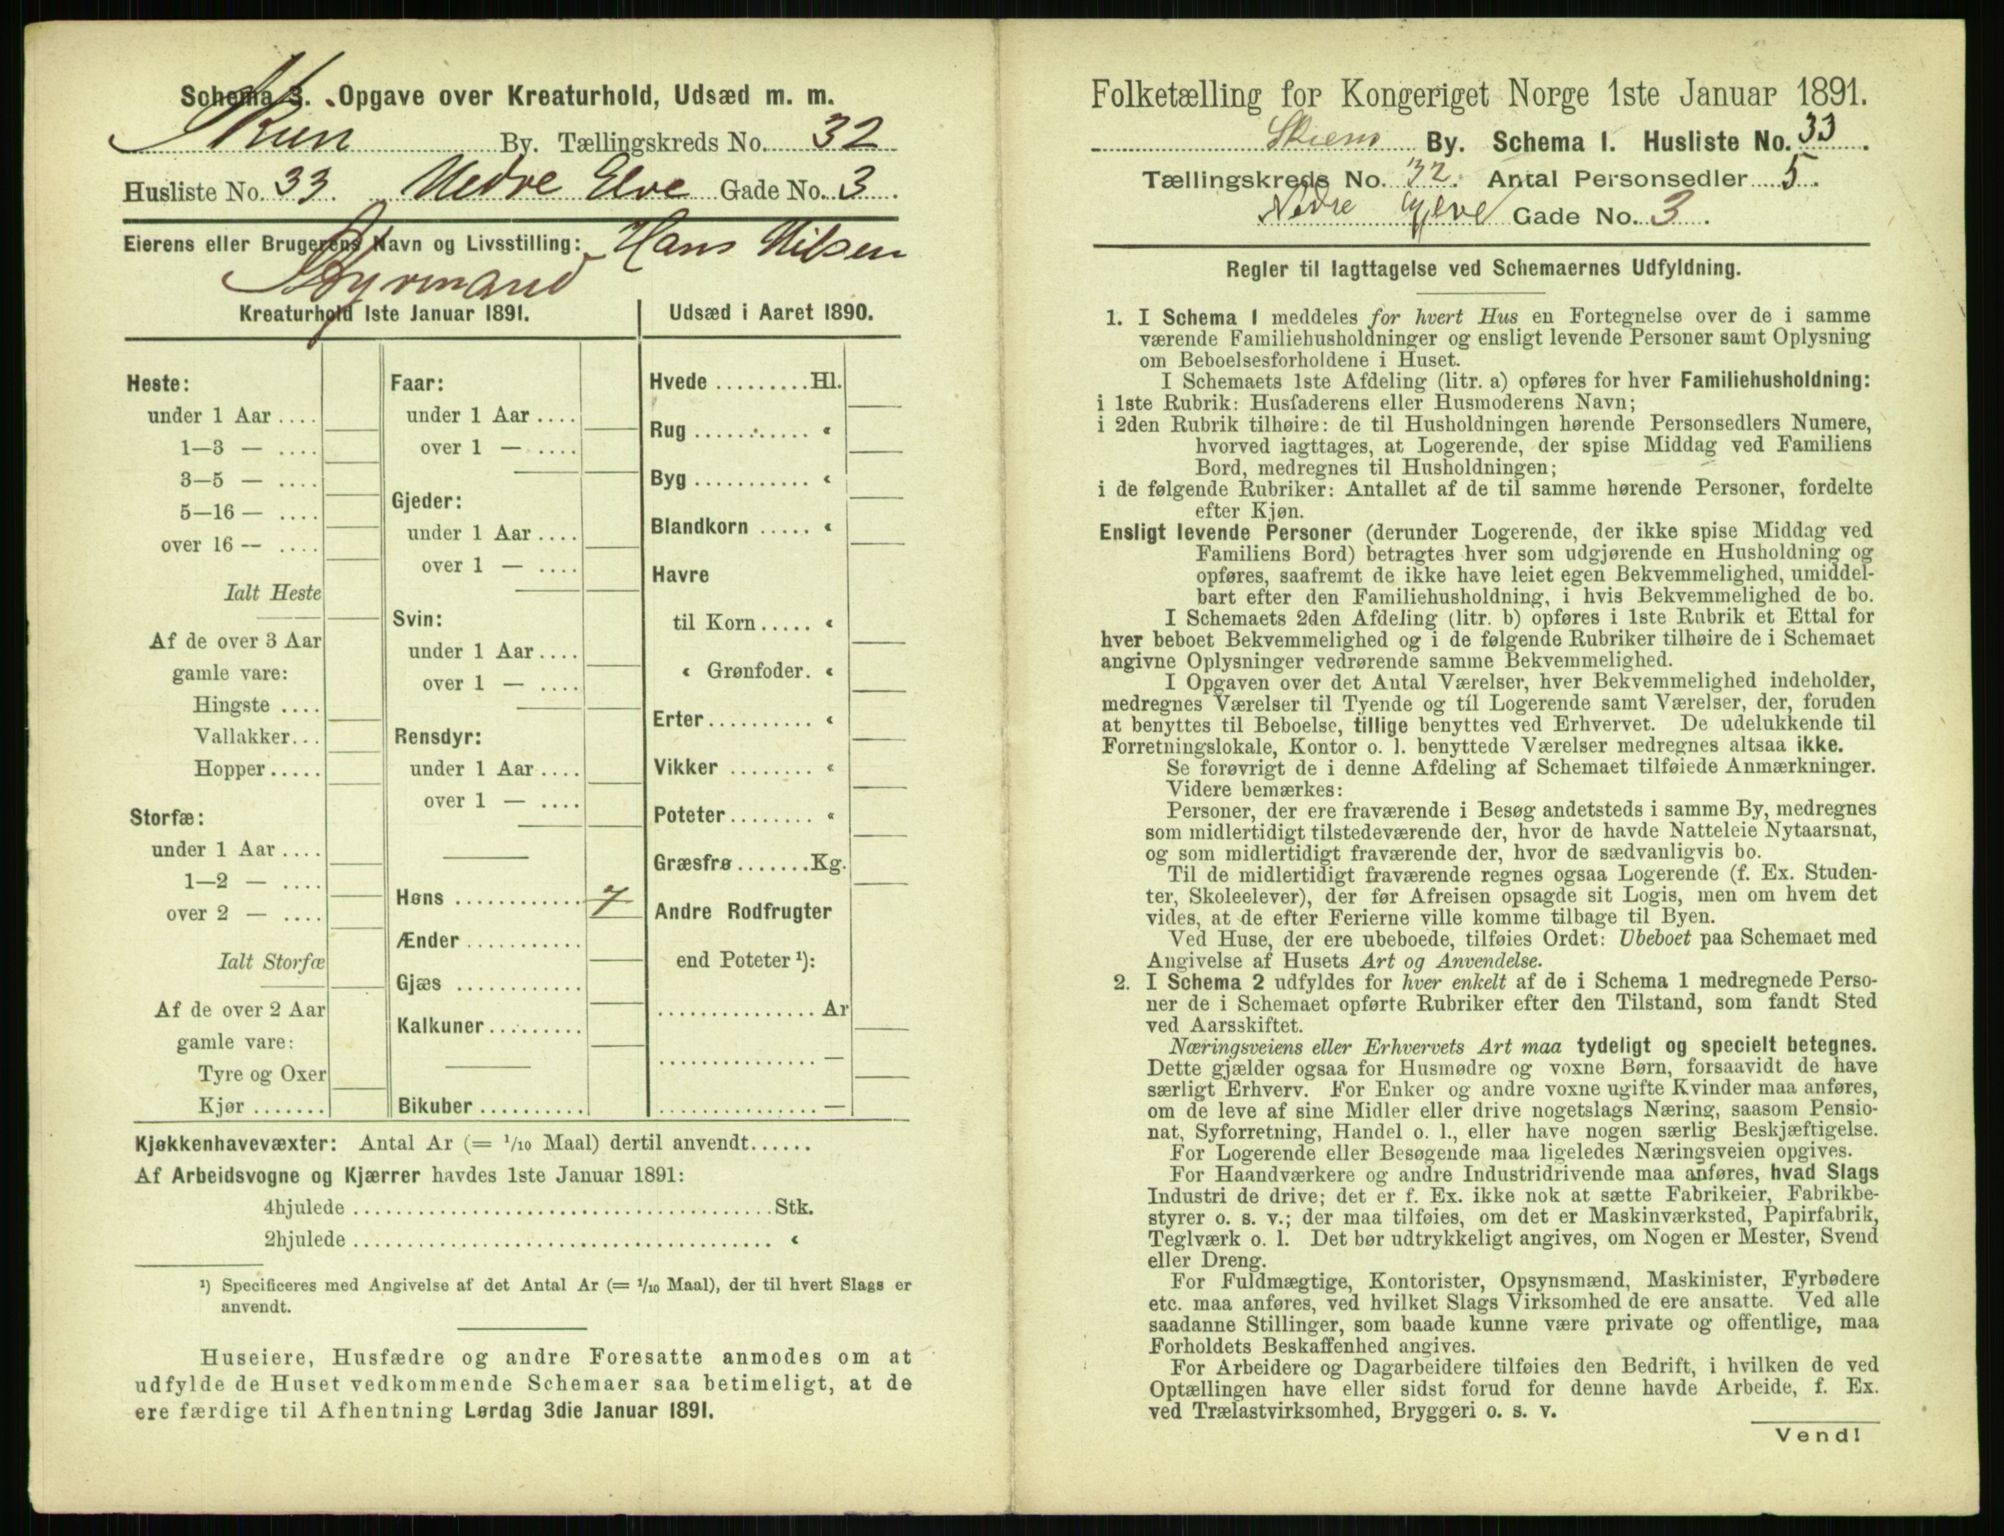 Schema 3. Opgave over Kreaturhold, Udsæd m. m.
Skien By. Tællingskreds No. 32
Husliste No. 33 Nedre Elve Gade No. 3
Eierens eller Brugerens Navn og Livsstilling: Hans Nilsen
Styrmand
Kreaturhold 1ste Januar 1891.
Heste:
under 1 Aar ....
1—3 — ....
3—5 — ....
5—16 — ....
over 16 — ....
Ialt Heste
Af de over 3 Aar
gamle vare:
Hingste ....
Vallakker...
Hopper.....
Storfæ:
under 1 Aar ....
1—2 — ....
over 2 — ....
Ialt Storfæ
Af de over 2 Aar
gamle vare:
Tyre og Oxer
Kjør .......
Faar:
under 1 Aar ....
over 1 — ....
Gjeder:
under 1 Aar ....
over 1 — ....
Svin:
under 1 Aar ....
over 1 — ....
Rensdyr:
under 1 Aar ....
over 1 — ....
Høns ............ 7
Ænder ...........
Gjæs ............
Kalkuner.........
Bikuber ..........
Udsæd i Aaret 1890.
Hvede .........Hl.
Rug .......... «
Byg ........... «
Blandkorn ..... «
Havre
til Korn..... «
« Grønfoder. «
Erter.......... «
Vikker ........ «
Poteter........ «
Græsfrø .......Kg.
Andre Rodfrugter
end Poteter ¹):
............... Ar
............... —
............... —
Kjøkkenhavevæxter: Antal Ar (= 1/10 Maal) dertil anvendt......
Af Arbeidsvogne og Kjærrer havdes 1ste Januar 1891:
4hjulede ......................................Stk.
2hjulede ...................................... «
¹) Specificeres med Angivelse af det Antal Ar (= 1/10 Maal), der til hvert Slags er
anvendt.
Huseiere, Husfædre og andre Foresatte anmodes om at
udfylde de Huset vedkommende Schemaer saa betimeligt, at de
ere færdige til Afhentning Lørdag 3die Januar 1891.
Folketælling for Kongeriget Norge 1ste Januar 1891.
Skiens By. Schema 1. Husliste No. 33
Tællingskreds No. 32. Antal Personsedler 5.
Nedre Elve Gade No. 3.
Regler til Iagttagelse ved Schemaernes Udfyldning.
1. I Schema 1 meddeles for hvert Hus en Fortegnelse over de i samme
værende Familiehusholdninger og ensligt levende Personer samt Oplysning
om Beboelsesforholdene i Huset.
I Schemaets 1ste Afdeling (litr. a) opføres for hver Familiehusholdning:
i 1ste Rubrik: Husfaderens eller Husmoderens Navn;
i 2den Rubrik tilhøire: de til Husholdningen hørende Personsedlers Numere,
hvorved iagttages, at Logerende, der spise Middag ved Familiens
Bord, medregnes til Husholdningen;
i de følgende Rubriker: Antallet af de til samme hørende Personer, fordelte
efter Kjøn.
Ensligt levende Personer (derunder Logerende, der ikke spise Middag ved
Familiens Bord) betragtes hver som udgjørende en Husholdning og
opføres, saafremt de ikke have leiet egen Bekvemmelighed, umiddel-
bart efter den Familiehusholdning, i hvis Bekvemmelighed de bo.
I Schemaets 2den Afdeling (litr. b) opføres i 1ste Rubrik et Ettal for
hver beboet Bekvemmelighed og i de følgende Rubriker tilhøire de i Schemaet
angivne Oplysninger vedrørende samme Bekvemmelighed.
I Opgaven over det Antal Værelser, hver Bekvemmelighed indeholder,
medregnes Værelser til Tyende og til Logerende samt Værelser, der, foruden
at benyttes til Beboelse, tillige benyttes ved Erhvervet. De udelukkende til
Forretningslokale, Kontor o. l. benyttede Værelser medregnes altsaa ikke.
Se forøvrigt de i denne Afdeling af Schemaet tilføiede Anmærkninger.
Videre bemærkes:
Personer, der ere fraværende i Besøg andetsteds i samme By, medregnes
som midlertidigt tilstedeværende der, hvor de havde Natteleie Nytaarsnat,
og som midlertidigt fraværende der, hvor de sædvanligvis bo.
Til de midlertidigt fraværende regnes ogsaa Logerende (f. Ex. Studen-
ter, Skoleelever), der før Afreisen opsagde sit Logis, men om hvem det
vides, at de efter Ferierne ville komme tilbage til Byen.
Ved Huse, der ere ubeboede, tilføies Ordet: Ubeboet paa Schemaet med
Angivelse af Husets Art og Anvendelse.
2. I Schema 2 udfyldes for hver enkelt af de i Schema 1 medregnede Perso-
ner de i Schemaet opførte Rubriker efter den Tilstand, som fandt Sted
ved Aarsskiftet.
Næringsveiens eller Erhvervets Art maa tydeligt og specielt betegnes.
Dette gjælder ogsaa for Husmødre og voxne Børn, forsaavidt de have
særligt Erhverv. For Enker og andre voxne ugifte Kvinder maa anføres,
om de leve af sine Midler eller drive nogetslags Næring, saasom Pensio-
nat, Syforretning, Handel o. l., eller have nogen særlig Beskjæftigelse.
For Logerende eller Besøgende maa ligeledes Næringsveien opgives.
For Haandværkere og andre Industridrivende maa anføres, hvad Slags
Industri de drive; det er f. Ex. ikke nok at sætte Fabrikeier, Fabrikbe-
styrer o. s. v.; der maa tilføies, om det er Maskinværksted, Papirfabrik,
Teglværk o. l. Det bør udtrykkeligt angives, om Nogen er Mester, Svend
eller Dreng.
For Fuldmægtige, Kontorister, Opsynsmænd, Maskinister, Fyrbødere
etc. maa anføres, ved hvilket Slags Virksomhed de ere ansatte. Ved alle
saadanne Stillinger, som baade kunne være private og offentlige, maa
Forholdets Beskaffenhed angives.
For Arbeidere og Dagarbeidere tilføies den Bedrift, i hvilken de ved
Optællingen have eller sidst forud for denne havde Arbeide, f. Ex.
ved Trælastvirksomhed, Bryggeri o. s. v.
Vend!